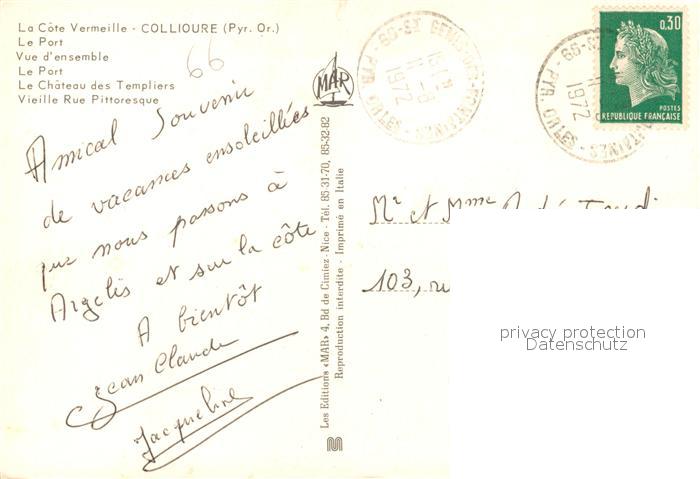 La Côte Vermeille - COLLIOURE (Pyr. Or.)
Le Port
Vue d'ensemble
Le Port
Le Château des Templiers
Vieille Rue Pittoresque
66
MAR
Amical Souvenir
de vacances ensoleillées
que nous passons à
Argelès et sur la côte
A bientôt
Jean Claude
Jacqueline
Les Editions «MAR» 4, Bd de Cimiez - Nice - Tél. 85-31-70, 85-32-82
Reproduction interdite - Imprimé en Italie
1972
PYR. ORLES
1972
PYR. ORLES
0,30
POSTES
REPUBLIQUE FRANÇAISE
Mr et Mme
103,
privacy protection
Datenschutz